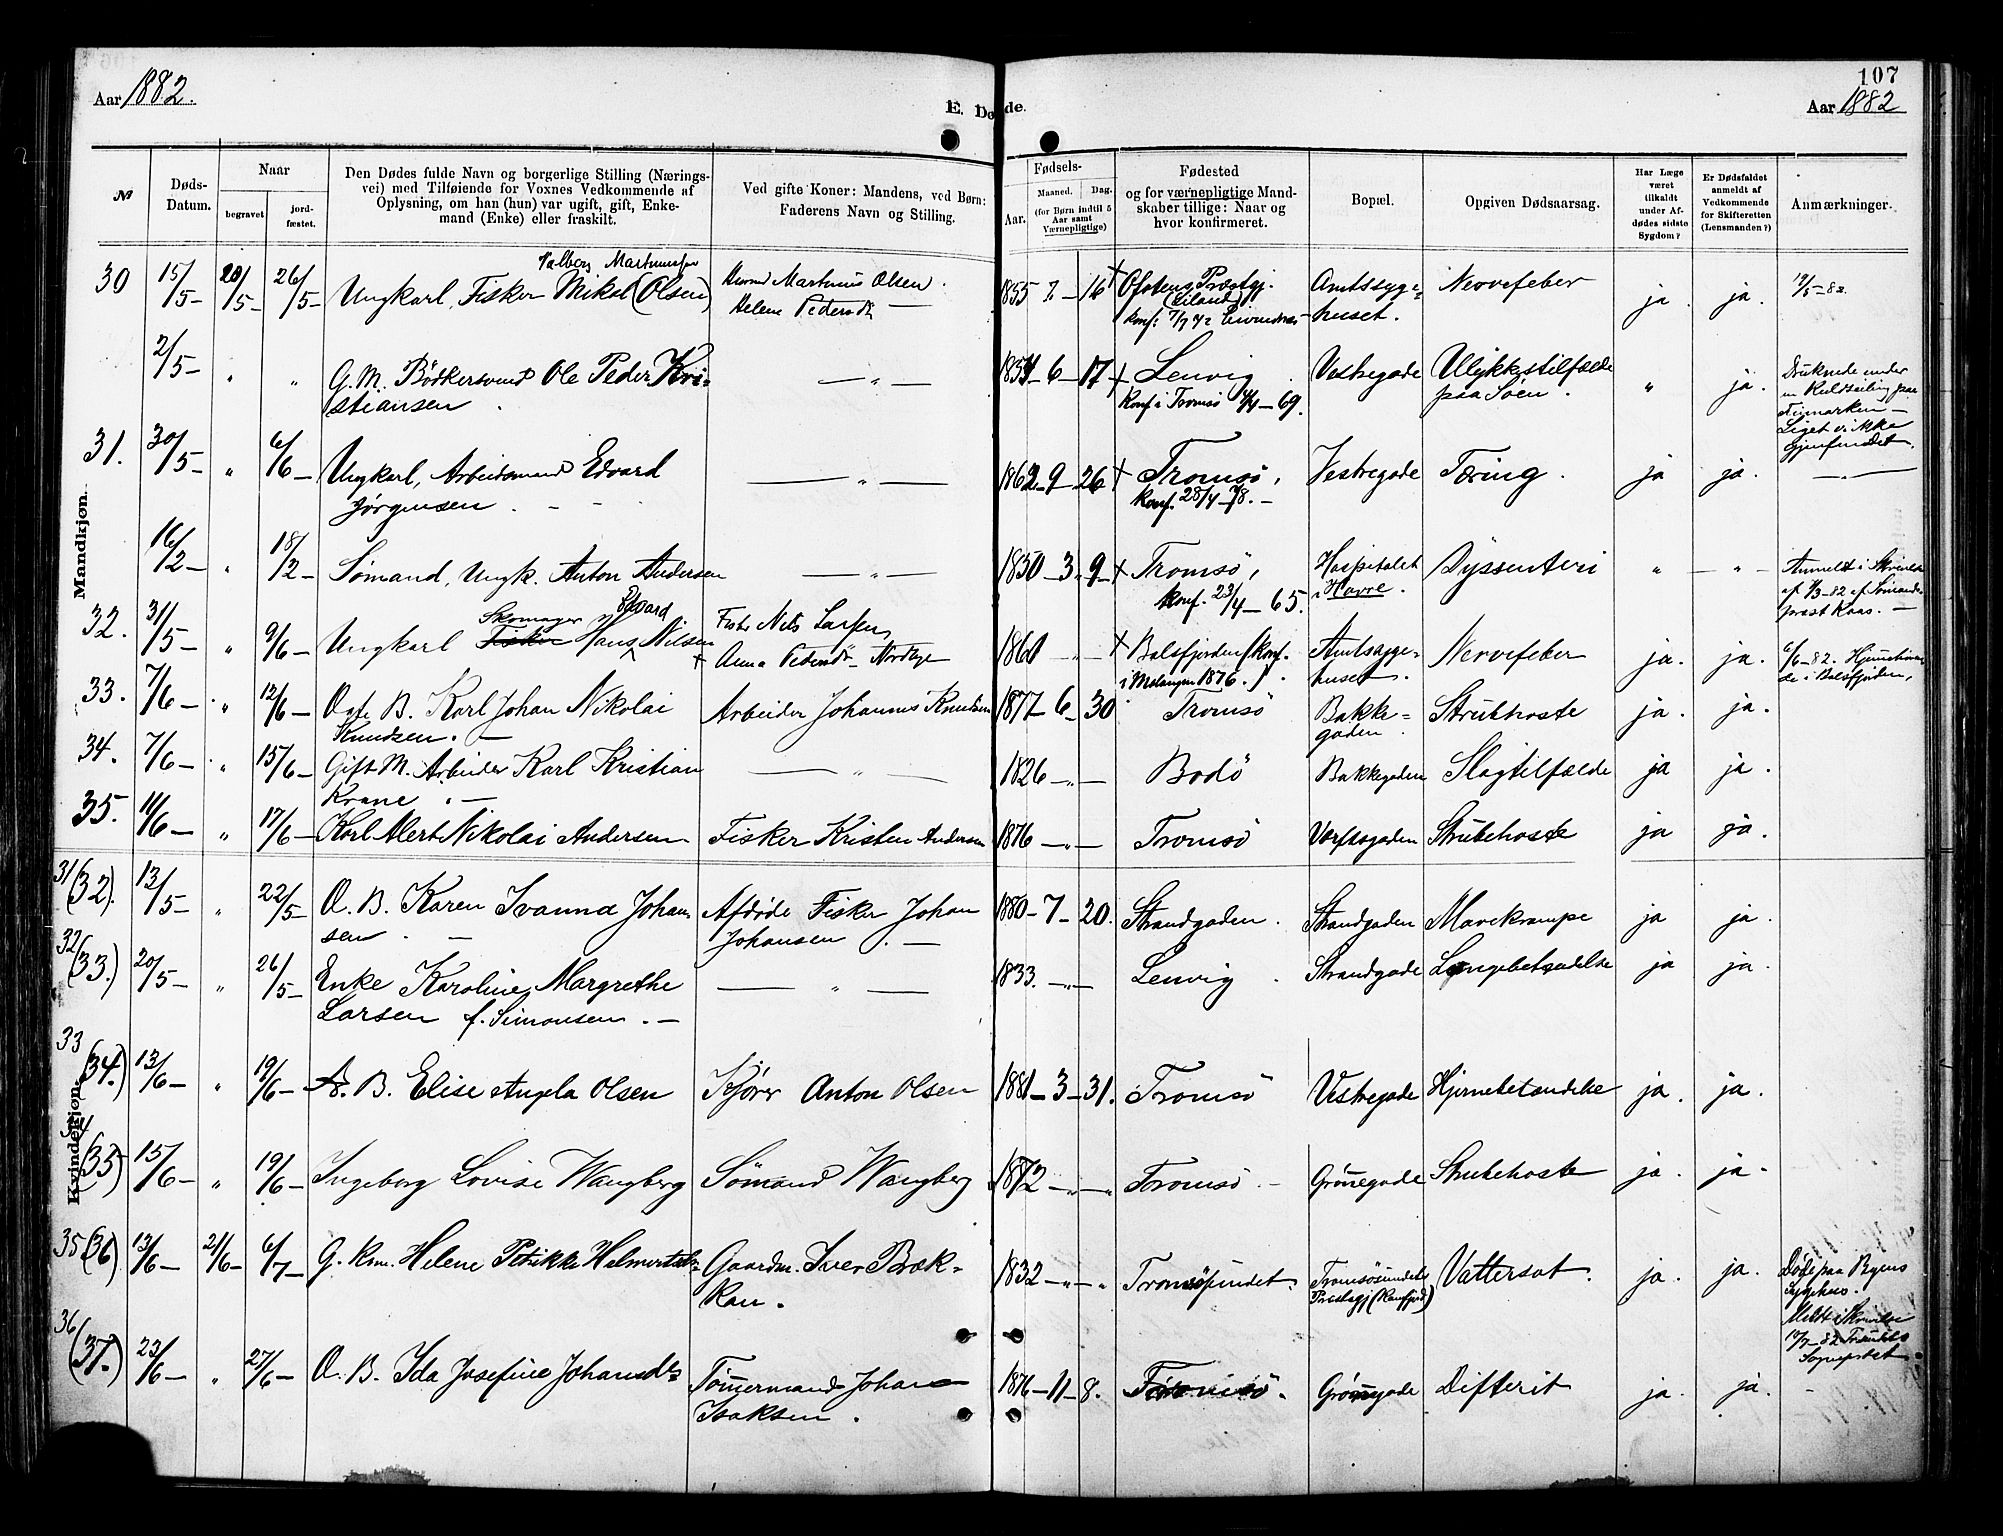 107
Aar 1882.
E. Døde.
Aar 1882
№
Døds-Datum.
Naar
begravet
jord-fæstet.
Den Dødes fulde Navn og borgerlige Stilling (Nærings-
vei) med Tilføiende for Voxnes Vedkommende af
Oplysning, om han (hun) var ugift, gift, Enke-
mand (Enke) eller fraskilt.
Ved gifte Koner: Mandens, ved Børn:
Faderens Navn og Stilling.
Fødsels-
Aar.
Maaned. Dag.
(for Børn indtil 5
Aar samt
Værnepligtige)
Fødested
og for værnepligtige Mand-
skaber tillige: Naar og
hvor konfirmeret.
Bopæl.
Opgiven Dødsaarsag.
Har Læge
været
tilkaldt
under Af-
dødes sidste
Sygdom?
Er Dødsfaldet
anmeldt af
Vedkommende
for Skifteretten
(Lensmanden?)
Anmærkninger.
Mandkjøn.
30 15/5 20/5 26/5 Ungkarl, Fisker Mikal (Olsen) Martinus Olsen. 1855 16 † Ofotens Amtssyge- Nervefeber ja. ja. 19/5-82
Helene Pedersdtr huset.
2/5 " " G. M. Bödkersvend Ole Peder Kri- — " — 1854-6-17 † Lenvig Vestregade Ulykkestilfælde " ja. Druknede under
stiansen. Konf. i Tromsö 69. paa Söen. Finmarken —
Liget ei ikke
gjenfundet.
31. 30/5 " 6/6 Ungkarl, Arbeidsmand Edvard — " — 1862-9-26 † Tromsö, Vestregade Tæring. ja ja. — " —
Jørgensen. Konf. 28/4-78.
16/2 " 18/2 Sømand, Ungk. Anton Andersen — " — 1850-3-9 † Tromsö, Hospitalet Dyssenteri " — " — Anmeldt i Skrivelse
Konf. 23/4-65. i Havre. af 1/3-82 af Sömands
prest Kaas. —
Skomager Edvard
32. 31/5 " 9/6 Ungkarl Fisker Hans Nilsen Fisker Nils Larsen 1860 † Balsfjorden (Konf. Amtssyge- Nervefeber ja. ja. 6/6-82.
Anna Pedersdtr i Malangen 1876.) huset. i Balsfjorden.
33. 7/6 " 12/6 B. Karl Johan Nikolai Arbeider Johannes Knudsen 1877-6-30 Tromsö Bakke- Strubhoste ja. ja.
Knudsen. gaden
34. 7/6 " 15/6 Gift M. Arbeider Karl Kristian — " — 1826 Bodö Bakkegaden Slagtilfælde ja ja.
Krane
35. 11/6 " 17/6 Karl Alert Nikolai Andersen Fisker Kristen Andersen 1876 Tromsö Værftsgaden Strubehoste ja ja.
Kvindekjøn.
31 (32). 13/5 " 22/5 B. Karen Ivanna Johan Afdöde Fisker Johan 1880-7-20. Strandgaden. Strandgaden Mavekrampe ja ja.
sen Johansen
32 (33.) 20/5 " 26/5 Enke Karoline Margrethe — " — 1833. Lenvig Strandgade Lungebetændelse ja ja.
Larsen f. Simonsen. —
33 (34.) 13/6 " 19/6 B. Elise Angela Olsen Kjører Anton Olsen 1881-3-31. Tromsö Vestregade Hjernebetændelse ja. ja.
34 (35) 15/6 " 19/6 Ingeborg Lovise Wangberg Sömand Wangberg 1872 Tromsö. Grönnegade Strubehoste ja. ja.
35 (36) 13/6 21/6 6/7 G. Kone Helene Petrikke Gaardm. Iver Bræk- 1832 Tromsösundet. Tromsösundets Vattersot. ja. ja. Døde paa Byens
kan. Præstegj. Sygehus.
Meldt i Skrivelse
36 (37.) 23/6 " 27/6 B. Ida Josefine Johansdtr Tömmermand Johan 1876-11-8. Tromsö. Grönnegade Difterit ja. ja.
Isaksen.